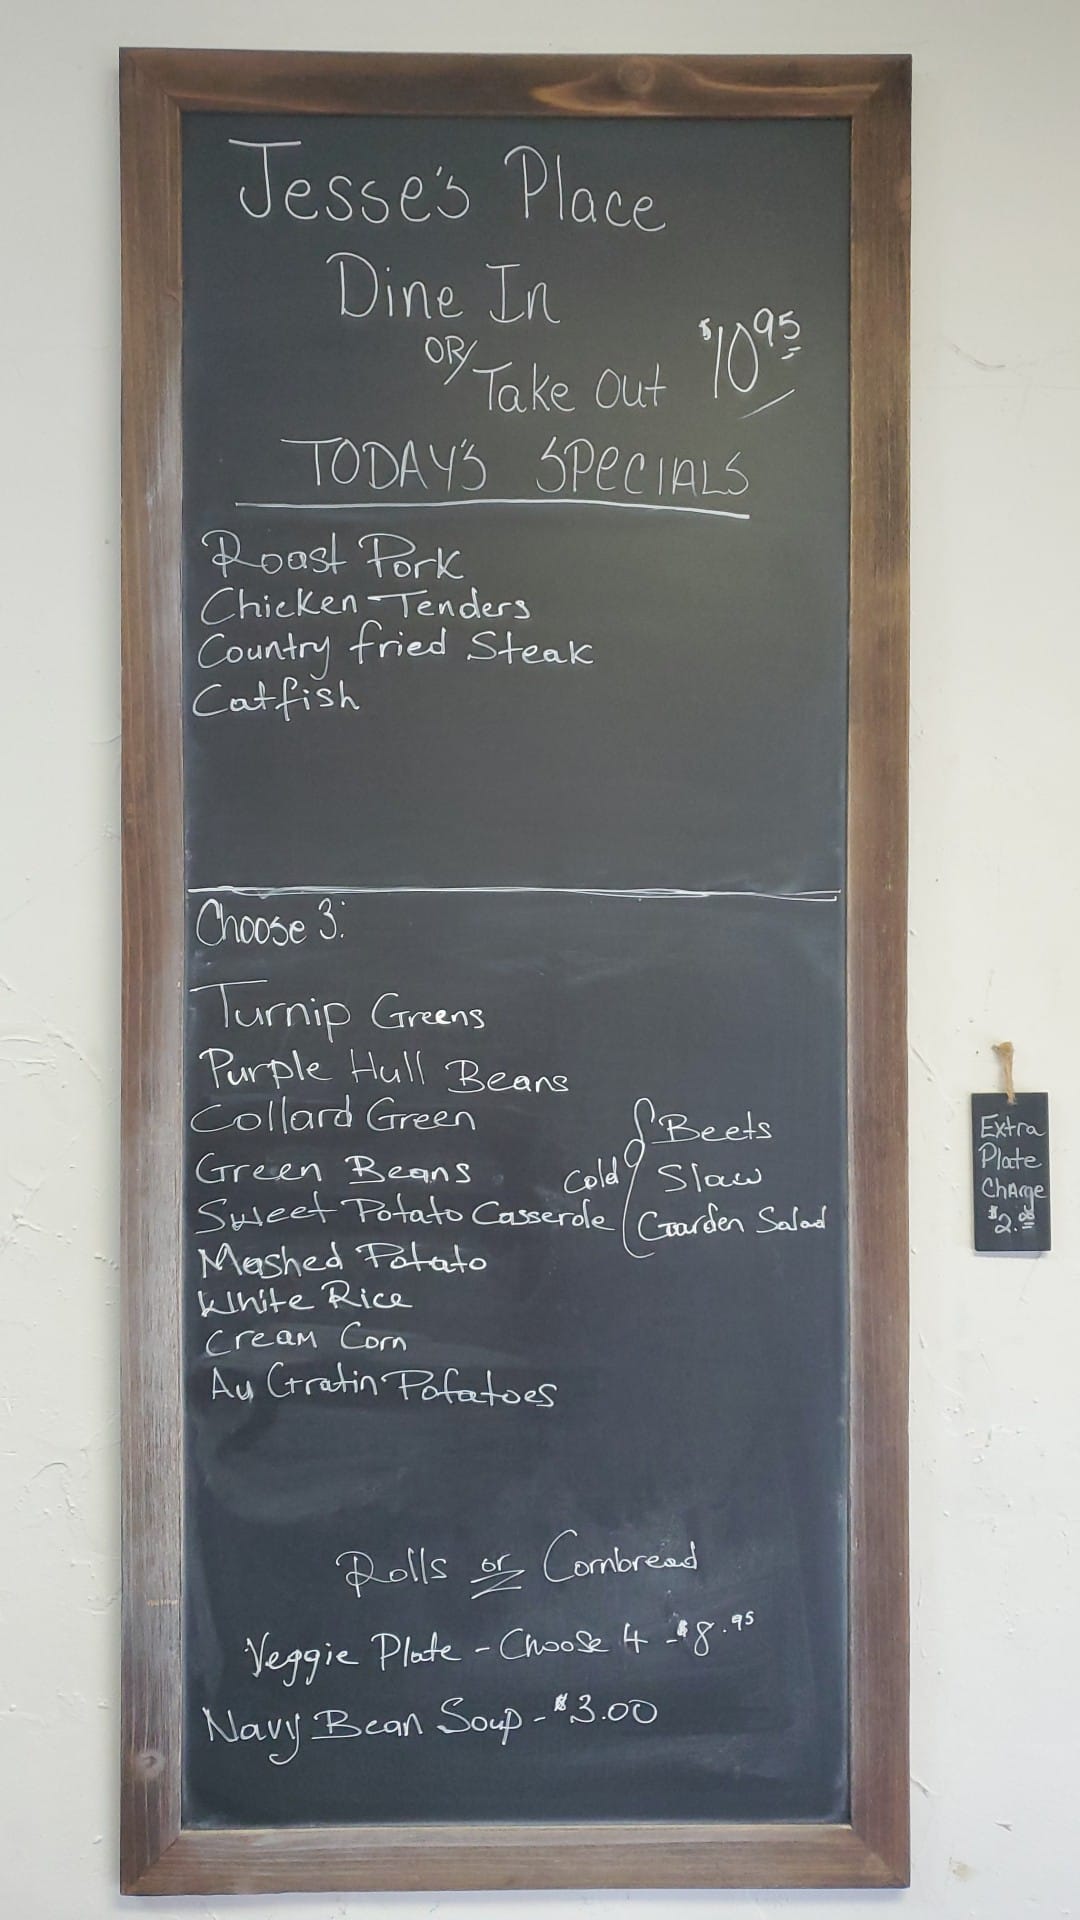 Jesse's Place
Dine In
OR/
Take Out $10.95
TODAY'S SPECIALS
Roast Pork
Chicken Tenders
Country fried Steak
Catfish
Choose 3:
Turnip Greens
Purple Hull Beans
Collard Green
Green Beans
Sweet Potato Casserole
Mashed Potato
White Rice
Cream Corn
Au Gratin Potatoes
Cold
Beets
Slaw
Garden Salad
Rolls or Cornbread
Veggie Plate - Choose 4 - $8.95
Navy Bean Soup - $3.00
Extra
Plate
Charge
$2.00